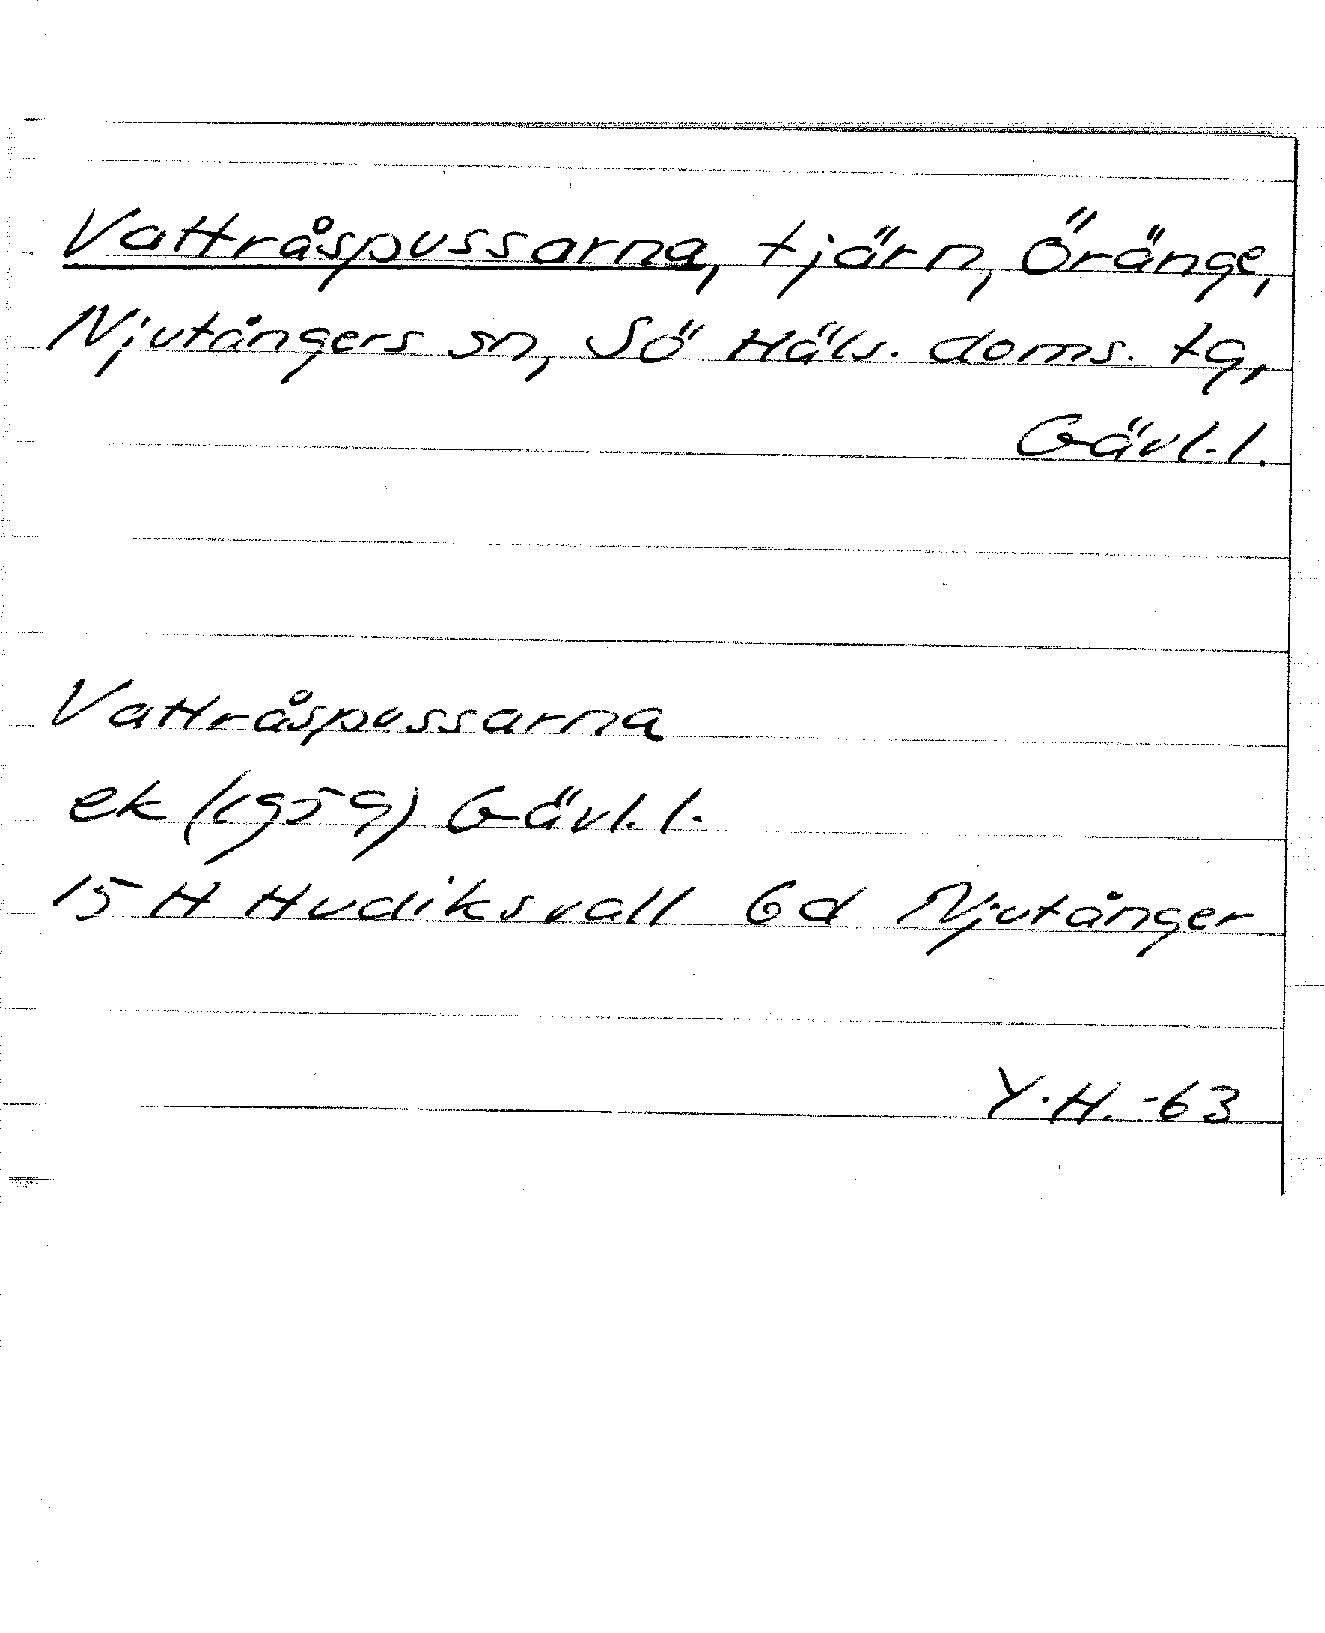 Vattråspussarna, tjärn, Öränge,
Njutångers sn, Sö Häls. doms. tg,
Gävl. l.
Vattråspussarna
ek (1959) Gävl. l.
15 H Hudiksvall 6d Njutånger
Y. H. -63